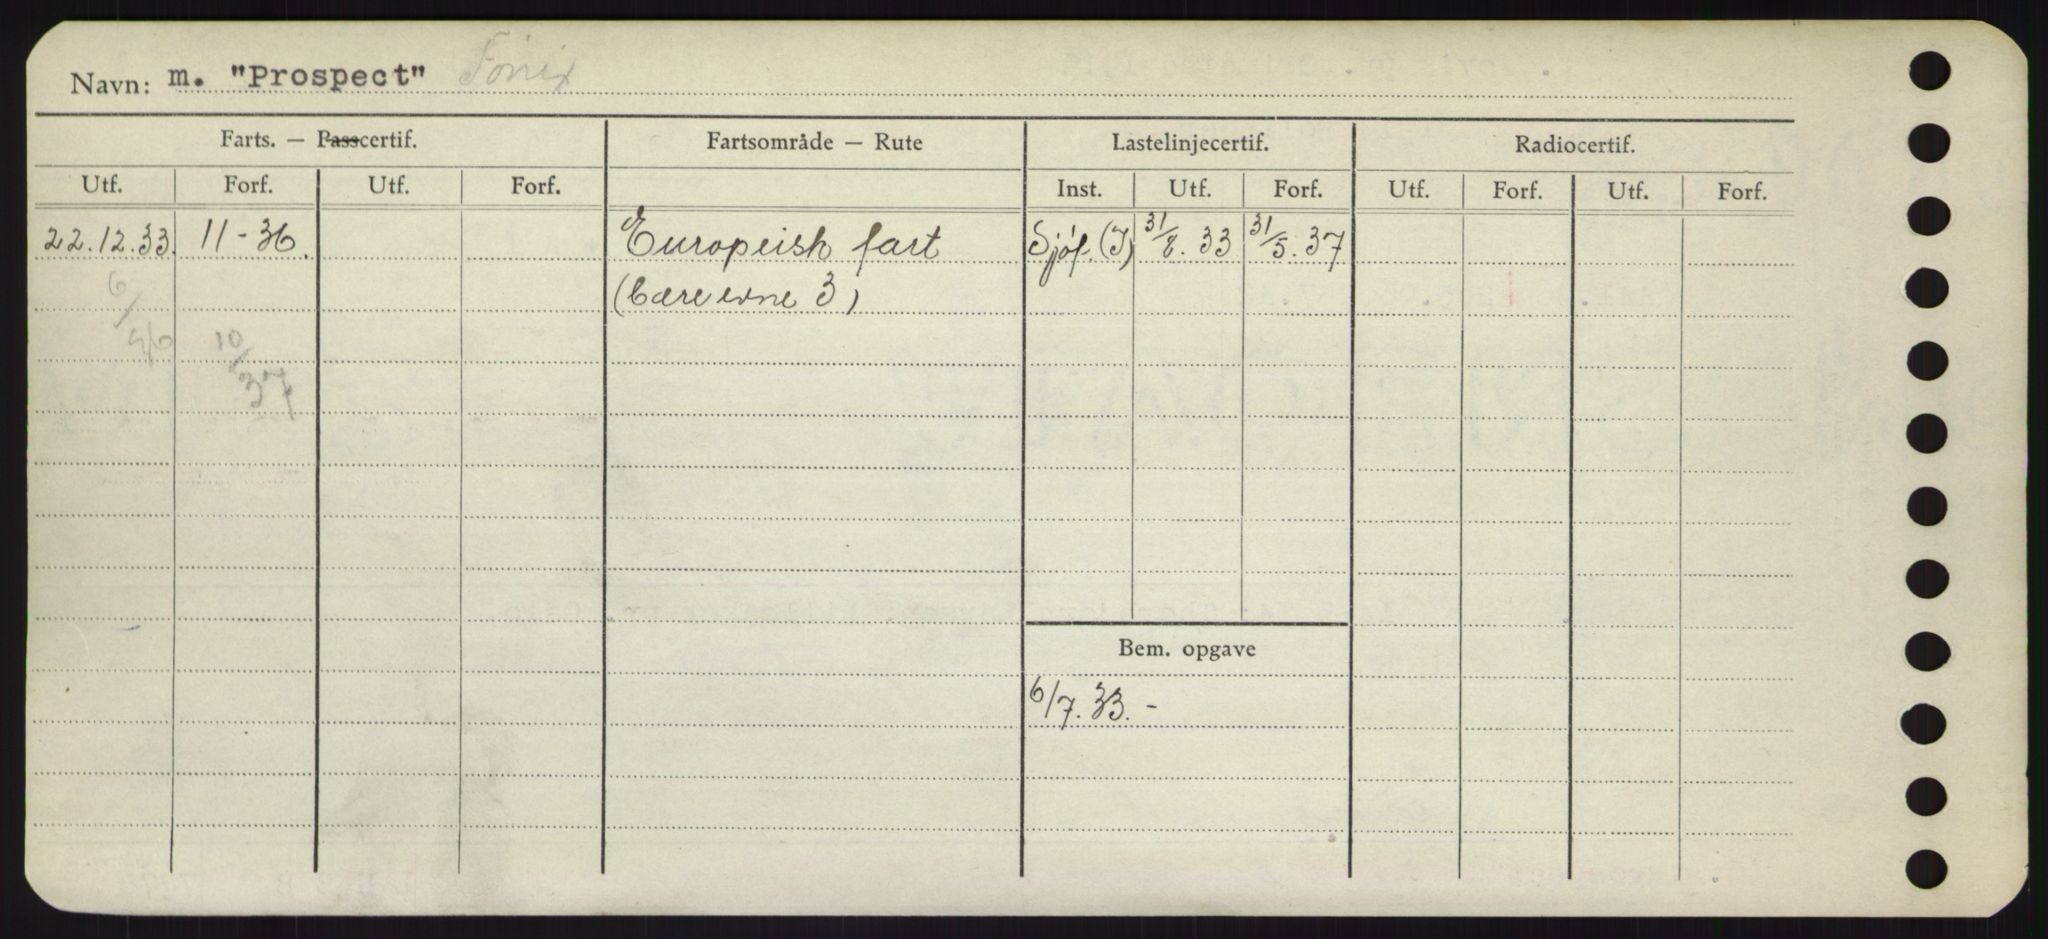 Navn: m. "Prospect" Fönix
Farts. — Passcertif. Fartsområde — Rute Lastelinjecertif. Radiocertif.
Utf. Forf. Utf. Forf. Inst. Utf. Forf. Utf. Forf. Utf. Forf.
22.12.33. 11-36. Europeisk fart Sjøf. (I) 31/8. 33 31/5. 37
(bæreevne 3)
6/36
10/37
Bem. opgave
6/7. 33. -